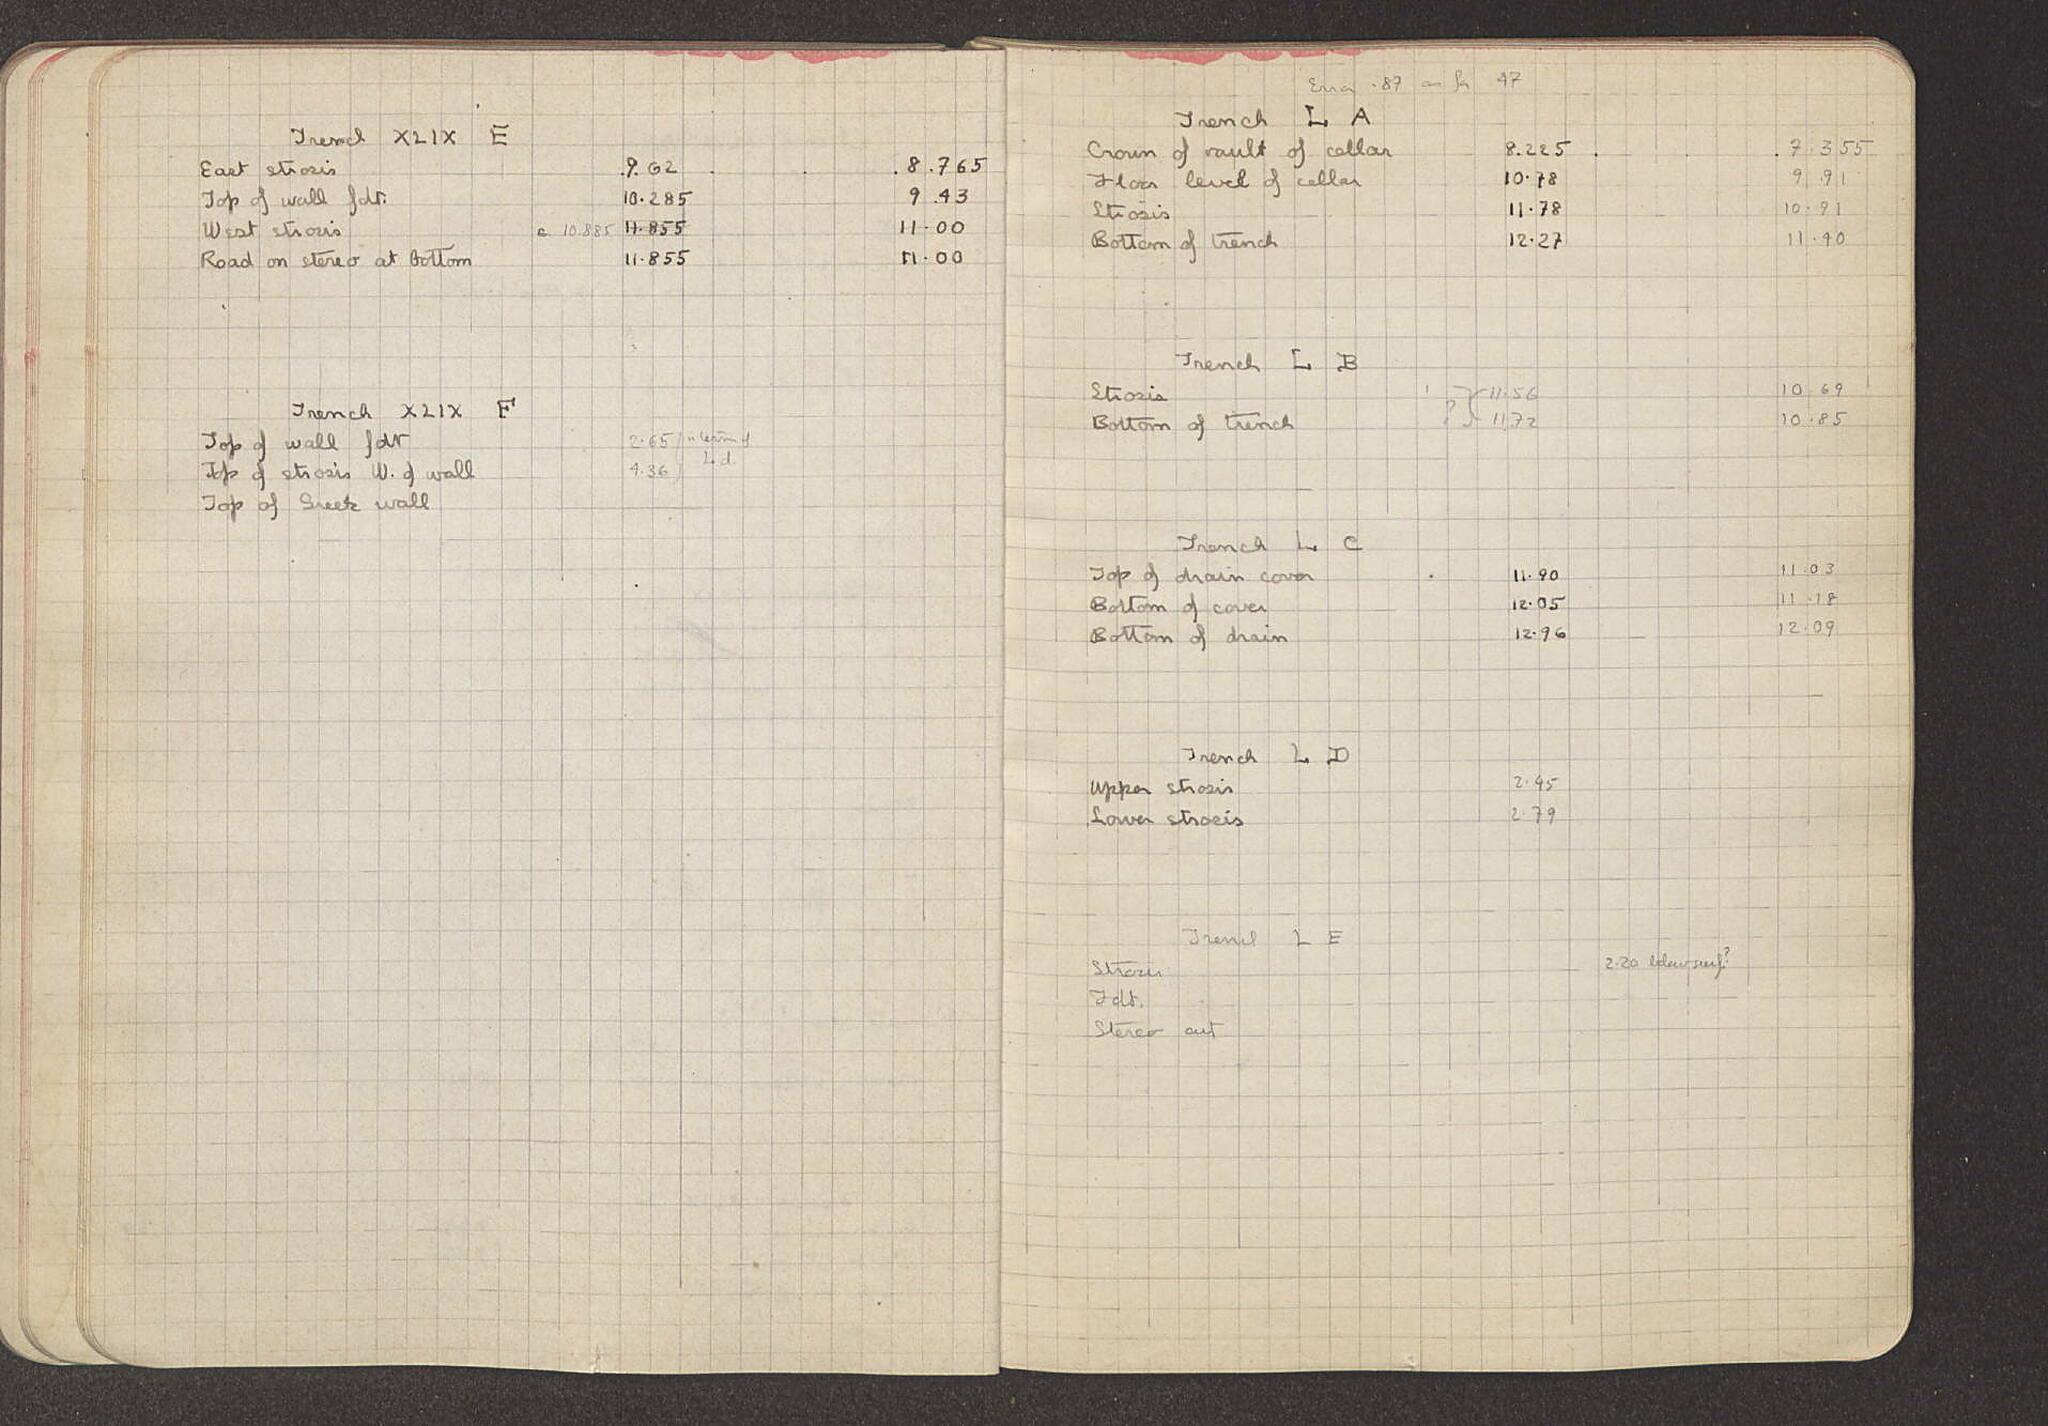 Trench XLIX E
East strosis 9.62 8.765
Top of wall fdt. 10.285 9.43
West strosis c 10.885 11.855 11.00
Road on stereo at bottom 11.855 11.00
Trench XLIX F
Top of wall fdt 2.65
Top of strosis W. of wall 4.36
Top of Greek wall
Error .87 as for 47
Trench L A
Crown of vault of cellar 8.225 7.355
Floor level of cellar 10.78 9.91
Strosis 11.78 10.91
Bottom of trench 12.27 11.40
Trench L B
Strosis ? 11.56 10.69
Bottom of trench 11.72 10.85
Trench L C
Top of drain cover 11.90 11.03
Bottom of cover 12.05 11.18
Bottom of drain 12.96 12.09
Trench L D
Upper strosis 2.45
Lower strosis 2.79
Trench L E
Strosis 2.20 below surf?
Fdt.
Stereo cut